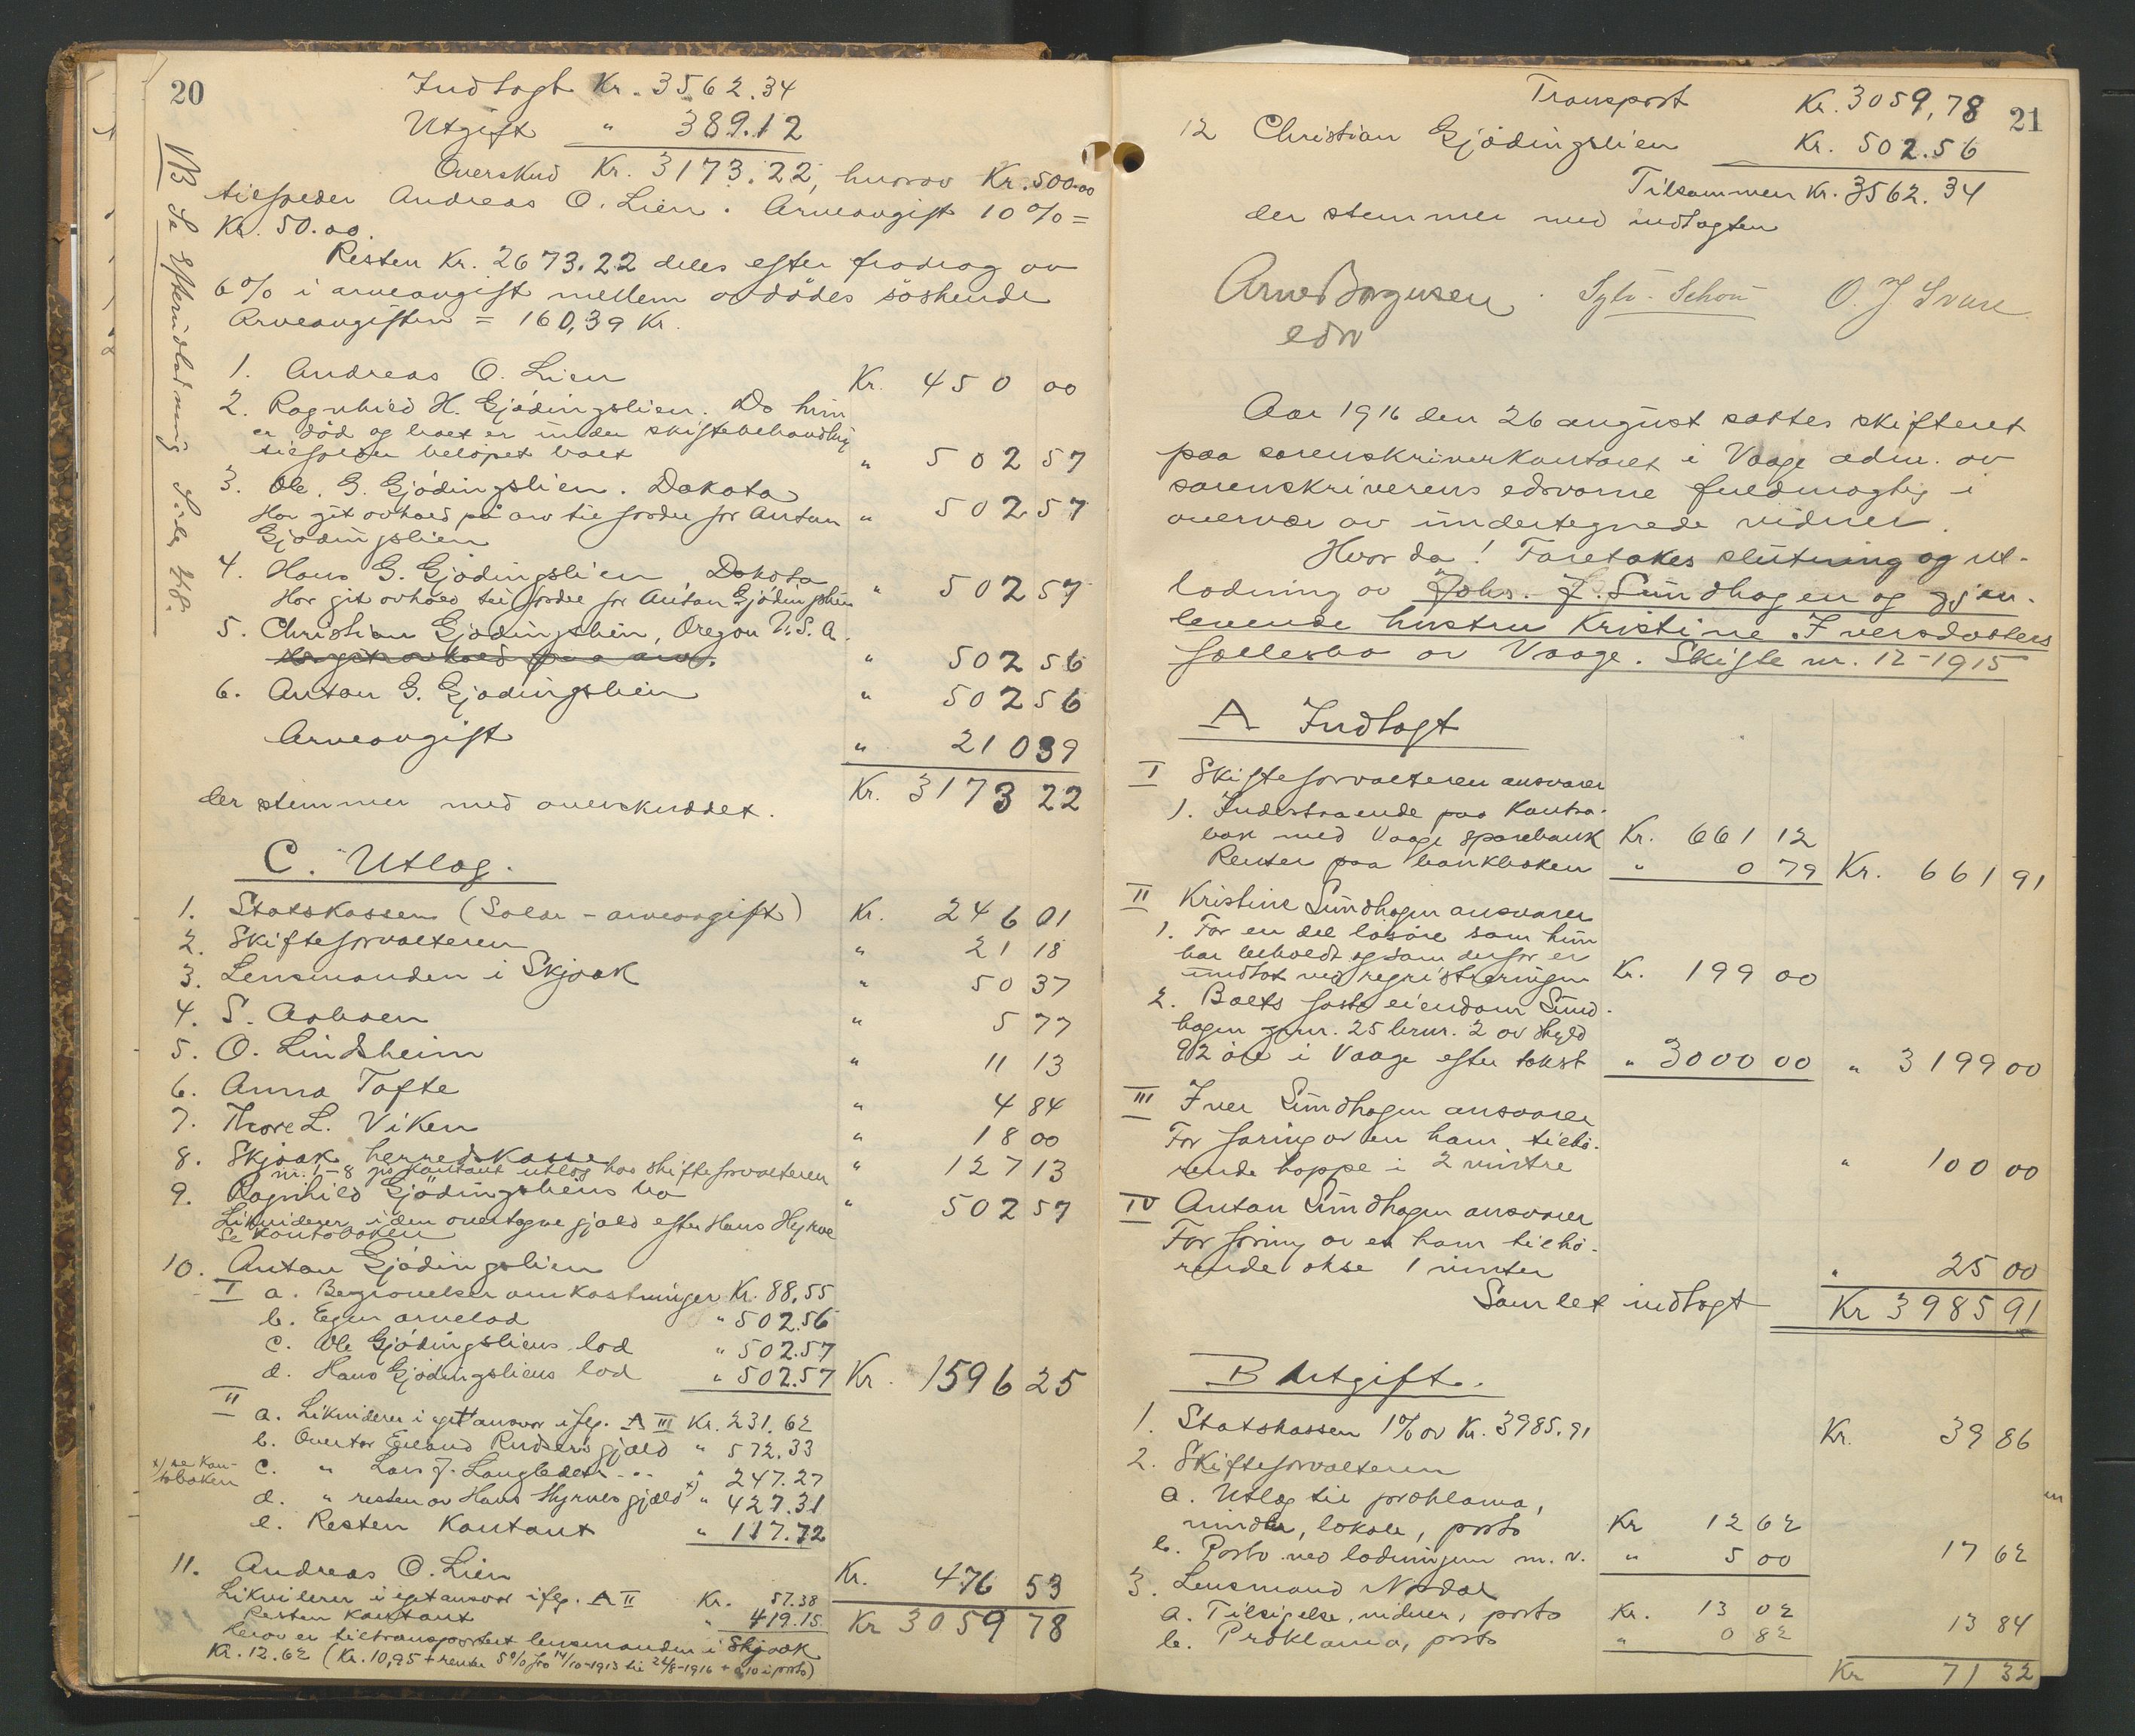 20
Indtægt Kr. 3562.34
Utgift " 389.12
Overskud Kr. 3173.22, hvorav Kr. 500.00
tilfalder Andreas O. Lien. Arveavgift 10% =
Kr. 50.00.
Resten Kr. 2673.22 deles efter fradrag av
6% i arveavgift mellem avdødes søskende
Arveavgiften = 160,39 Kr.
NB Se Efterutlodning Side 218.
1. Andreas O. Lien Kr. 450 00
2. Ragnhild H. Gjødingslien. Da hun
er død og boet er under skiftebehandling
tilfalder beløpet boet " 502 57
3. Ole. G. Gjødingslien. Dakota
Har git avkald på arv til fordel for Anton " 502 57
Gjødingslien
4. Hans G. Gjødingslien, Dakota
Har git avkald til fordel for Anton Gjødingslien " 502 57
5. Christian Gjødingslien, Oregon U.S.A.
Har git avkald paa arv. " 502 56
6. Anton G. Gjødingslien " 502 56
Arveavgift " 210 39
der stemmer med overskuddet. Kr. 3173 22
C. Utlæg.
1. Statskassen (Salær - arveavgift) Kr. 246 01
2. Skifteforvalteren " 21 18
3. Lensmanden i Skjaak " 50 37
4. S. Aaboen " 5 77
5. O. Lindsheim " 11 13
6. Anna Tofte " 4 84
7. Thore L. Viken " 18 00
8. Skjaak herredskasse " 127 13
nr. 1-8 gis kontant utlæg hos skifteforvalteren
9. Ragnhild Gjødingsliens bo " 502 57
Likviderer i den overtagne gjæld efter Hans Hyrve
Se Kontoboken
10. Anton Gjødingslien
I a. Begravelsesomkostninger Kr. 88,55
b. Egen arvelod " 502.56
c. Ole Gjødingsliens lod " 502.57
d. Hans Gjødingsliens lod " 502.57 Kr. 1596 25
II a. Likviderer i eget ansvar ifølg. A III Kr. 231.62
b. Overtar Erland Rudsens gjæld " 572.33
x) se Kon-
toboken
c. " Lars J. Langleden - .. " 247.27
d. " resten av Hans Hyrves gjæld x) " 427.31
e. Resten Kontant " 117.72
11. Andreas O. Lien Kr. 476 53
Likviderer i eget ansvar ifølg. A II Kr. 57.38
Resten Kontant " 419.15 Kr 3059 78
Herav er tiltransportert lensmanden i Skjaak
Kr. 12.62 (Kr. 10,95 + rente 5% fra 14/10-1913 til 26/8-1916 + 0,10 i porto)
21
Transport Kr. 3059,78
12 Christian Gjødingslien Kr. 502.56
Tilsammen Kr. 3562.34
der stemmer med indtægten
Arne Borgersen. Sylv. Schou O. J Svare
edsv
Aar 1916 den 26 august sattes skifteret
paa sorenskriverkontoret i Vaage adm. av
sorenskriverens edsvorne fuldmægtig i
overvær av undertegnede vidner.
Hvorda! Foretokes slutning og ut-
lodning av Johs. J. Sundhagen og gjen-
levende hustru Kristine Iversdatters
fællesbo av Vaage. Skifte nr. 12-1915
A Indtægt
I Skifteforvalteren ansvarer
1. Indestaaende paa Kontra-
bok med Vaage sparebank Kr. 661 12
Renter paa bankboken " 0 79 Kr. 661 91
II Kristine Sundhagen ansvarer
1. For en del løsøre som hun
har beholdt og som derfor er
undtat ved registreringen Kr. 199 00
2. Boets faste eiendom Sund-
hagen gnr. 25 brnr. 2 av skyld
92 øre i Vaage efter takst " 3000 00 " 3199 00
III Iver Sundhagen ansvarer
For foring av en ham tilhø-
rende hoppe i 2 vintre " 100 00
IV Anton Sundhagen ansvarer
For foring av en ham tilhø-
rende okse 1 vinter " 25 00
Samlet indtægt Kr 3985 91
B Utgift.
1. Statskassen 1% av Kr. 3985.91 Kr. 39 86
2. Skifteforvalteren
a. Utlæg til proklama,
vidner, lokale, porto Kr 12 62
b. Porto ved lodningen m. v. " 5 00 17 62
3. Lensmand Nordal
a. Tilsigelse, vidner, porto Kr. 13 02
b. Proklama, porto " 0 82 13 84
Kr 71 32